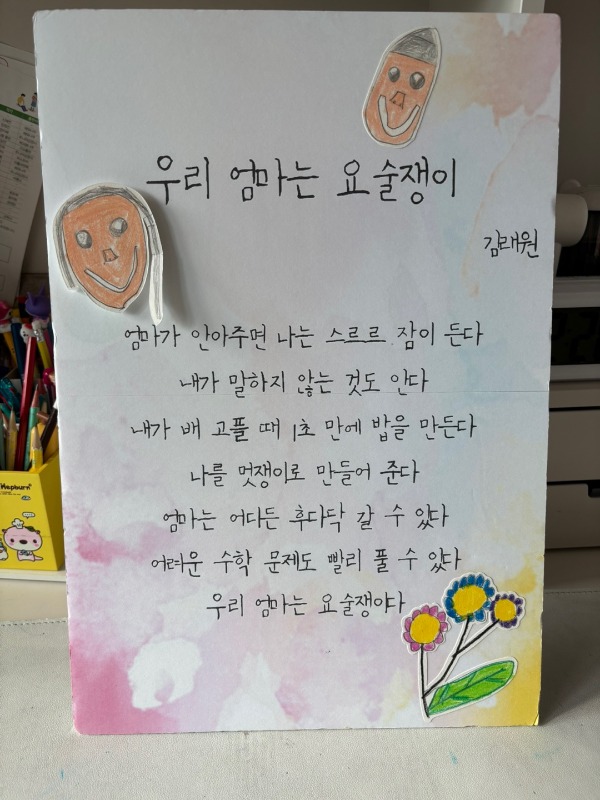 우리 엄마는 요술쟁이
김래원
엄마가 안아주면 나는 스르르 잠이 든다
내가 말하지 않는 것도 안다
내가 배 고플 때 1초 만에 밥을 만든다
나를 멋쟁이로 만들어 준다
엄마는 어디든 후다닥 갈 수 있다
어려운 수학 문제도 빨리 풀 수 있다
우리 엄마는 요술쟁이다
Hepburn